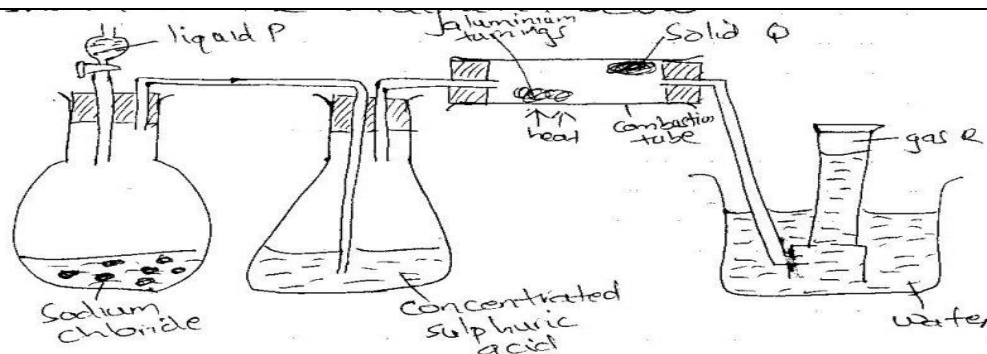 liquid P
aluminium
turnings
Solid Q
heat
Combustion
tube
gas R
Sodium
chloride
Concentrated
sulphuric
acid
water